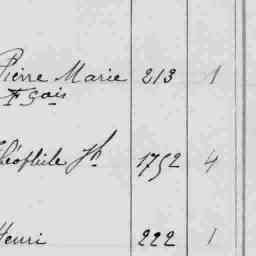 Pierre Marie 213 1
Fçois
Théophile Jh 1752 4
Henri 222 1